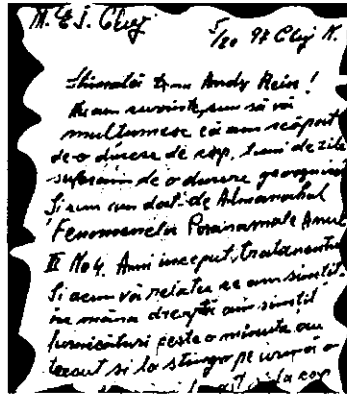 M. E. I. Cluj 5/20 97 Cluj N.
Stimată D-na Andy Rein!
Nu am cuvinte, cum să vă
mulțumesc că am scăpat
de o durere de cap, luni de zile
sufeream de o durere groaznică
Și cum am dat de Almanahul
Fenomenelor Paranormale Anul
II No 4. Am inceput tratamentu
Și acum vă relatez ce am simțit.
in mâna dreaptă am simțit
furnicături peste o minută au
trecut si la stinga pe urmă o
și la cap